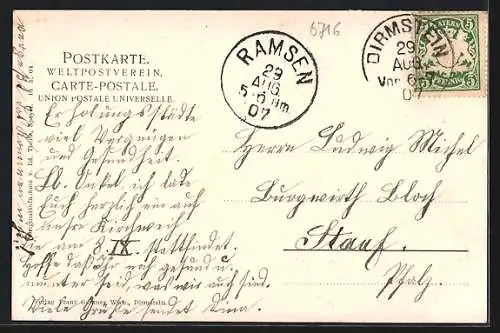 6716
POSTKARTE.
WELTPOSTVEREIN.
CARTE-POSTALE.
UNION POSTALE UNIVERSELLE.
RAMSEN
29
AUG
5-6 Nm.
07
DIRMSTEIN
29
AUG
Vor. 6-
07
BAYERN
5
5
PFENNIG
Erholungsstätte
viel Vergnügen
und Gesundheit.
Lb. Onkel ich lade
Euch herzlich ein auf
unsre Kirchweih
die am 8. IX. stattfindet.
Hoffe daß Ihr noch gesund u.
munter seid, was wir auch sind.
Viele Grüße sendet
Herrn Ludwig Michel
Burgwirth Bloch
Stauf.
Pfalz.
Verlag Franz Dirmstein.